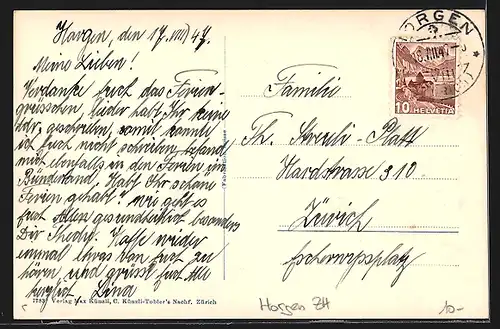 Horgen, den 17. VIII 47.
Meine Lieben!
Verdanke Euch das Ferien-
grüsschen, leider habt Ihr keine
Adr. geschrieben, somit konnte
ich Euch nicht schreiben, befand
mich ebenfalls in den Ferien im
Bündnerland. Habt Ihr schöne
Ferien gehabt? Wie geht es
Euch Allen gesundheitlich besonders
Dir Thedy. Hoffe wieder
einmal etwas von Euch zu
hören, und grüsst Euch Alle
herzlich Lina
7789 Verlag Max Künzli, C. Künzli-Tobler's Nachf. Zürich
HORGEN
10 HELVETIA
Familie
Th. Streuli-Platt
Hardstrasse 310
Zürich
Escherwyssplatz
Horgen ZH
10-